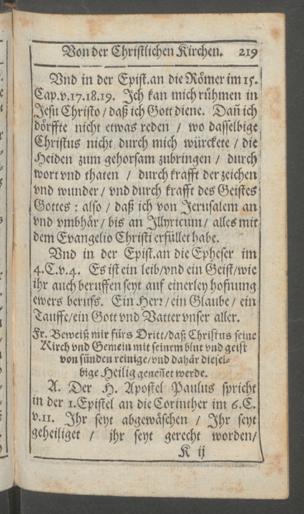 Von der Christlichen Kirchen. 219
Vnd in der Epist.an die Römer im 15.
Cap.v.17.18.19. Ich kan mich rühmen in
Jesu Christo / daß ich Gott diene. Dañ ich
dörffte nicht etwas reden / wo dasselbige
Christus nicht durch mich würckete / die
Heiden zum gehorsam zubringen / durch
wort vnd thaten / durch krafft der zeichen
vnd wunder / vnd durch krafft des Geistes
Gottes : also / daß ich von Jerusalem an
vnd vmbhär / bis an Illyricum / alles mit
dem Evangelio Christi erfüllet habe.
Vnd in der Epist.an die Epheser im
4.C.v.4. Es ist ein leib/vnd ein Geist/wie
ihr auch beruffen seyt auf einerley hofnung
ewers berufs. Ein Herr / ein Glaube / ein
Tauffe / ein Gott vnd Vatter vnser aller.
Fr. Beweiß mir fürs Dritt / daß Christus seine
Kirch vnd Gemein mit seinem blut vnd geist
von sünden reinige / vnd dahär diesel-
bige Heilig geneñet werde.
A. Der H. Apostel Paulus spricht
in der 1.Epistel an die Corinther im 6.C.
v.11. Ihr seyt abgewäschen / Ihr seyt
geheiliget / ihr seyt gerecht worden/
K ij